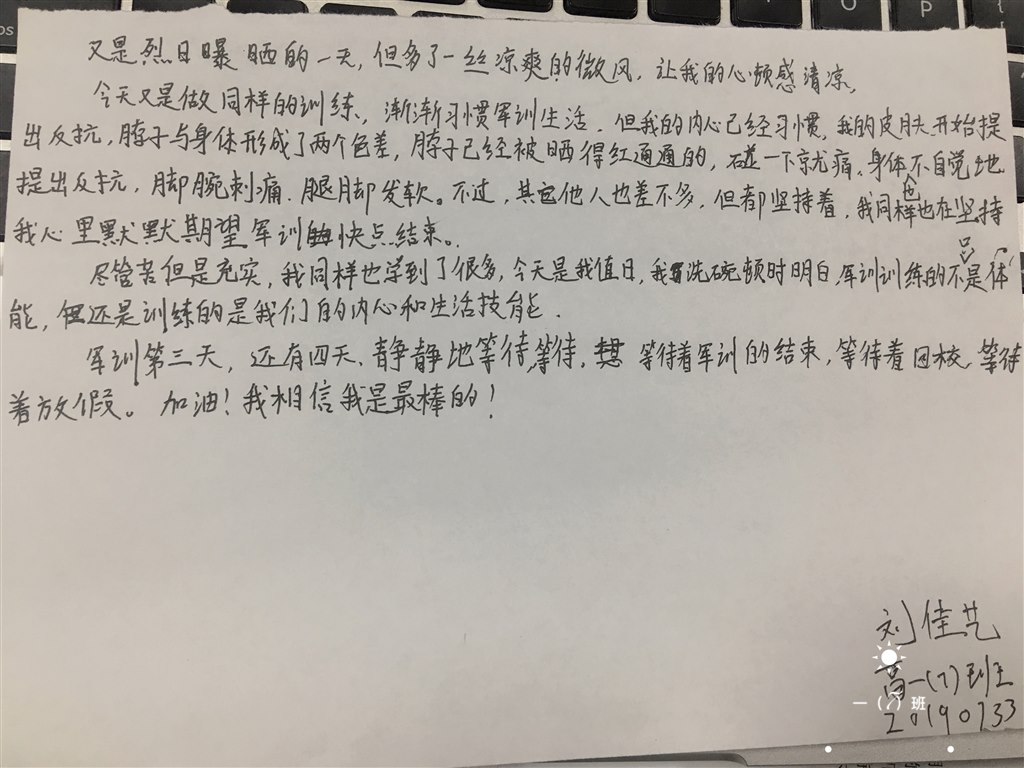 又是烈日曝晒的一天，但多了一丝凉爽的微风，让我的心顿感清凉，
今天又是做同样的训练，渐渐习惯军训生活．但我的内心已经习惯，我的皮肤开始提
出反抗，脖子与身体形成了两个色差，脖子已经被晒得红通通的，碰一下就尤痛，身体不自觉地
提出反抗，脚腕刺痛，腿脚发软。不过，其它他人也差不多，但都坚持着，我同样也在坚持
我心里默默期望军训快点结束。
尽管苦但是充实，我同样也学到了很多，今天是我值日，我洗碗顿时明白，军训训练的不只是体
能，但还是训练的是我们的内心和生活技能．
军训第三天，还有四天、静静地等待，等待，等待着军训的结束，等待着回校，等待
着放假。加油！我相信我是最棒的！
刘佳艺
高一(7)班
一（7）班
20190733
P